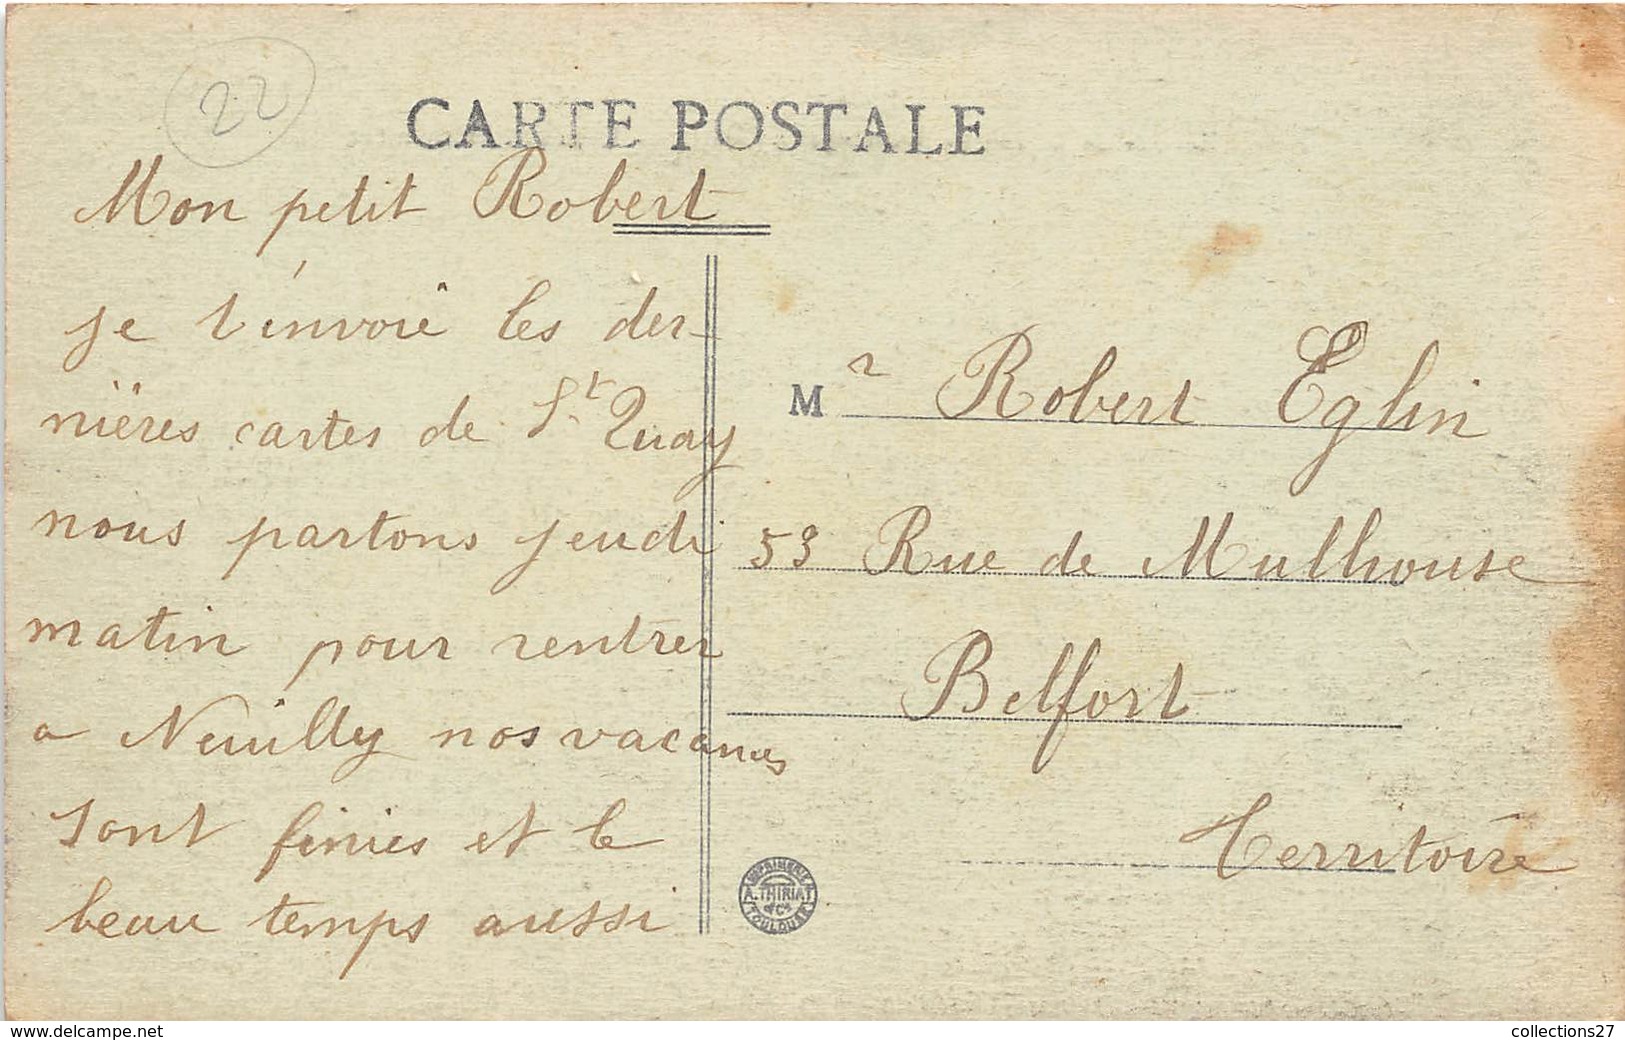 22
CARTE POSTALE
Mon petit Robert
je t'envoie les der-
nières cartes de St Quay
nous partons jeudi
matin pour rentrer
a Neuilly nos vacances
sont finies et le
beau temps aussi
Mr Robert Eglin
53 Rue de Mulhouse
Belfort
Territoire
IMPRIMERIE
A. THIRIAT
& Cie
TOULOUSE
www.delcampe.net
collections27